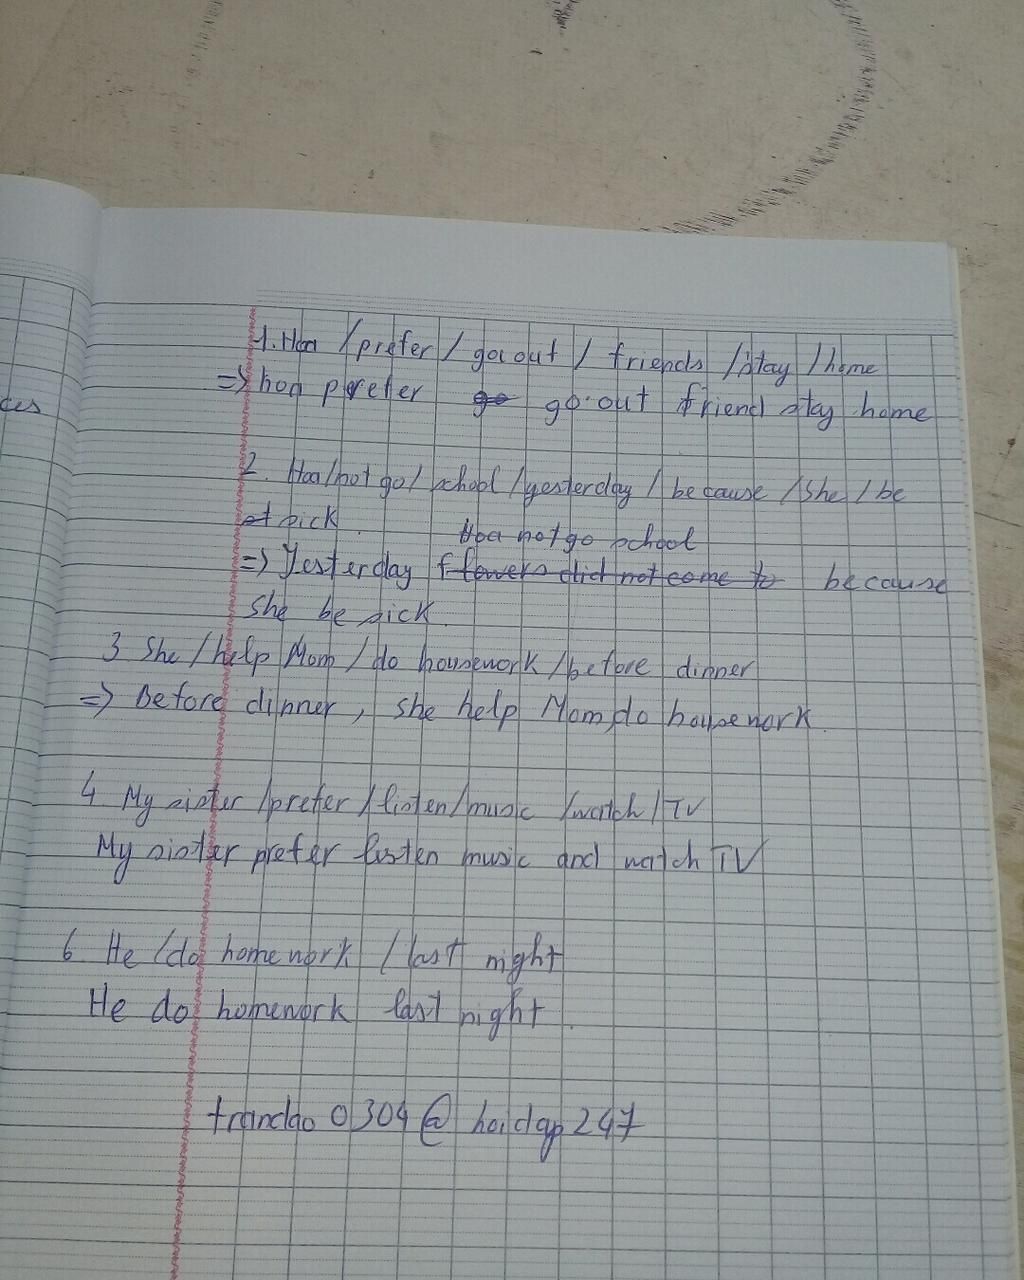 des
1. Hoa / prefer / go out / friends / stay / home
=> hoa prefer go go out friend stay home
2. Hoa / not go / school / yesterday / because / She / be
sick
Hoa not go school
=> Yesterday flowers did not come to because
she be sick.
3 She / help Mom / do housework / before dinner
=> Before dinner, she help Mom do housework.
4 My sister / prefer / listen / music / watch / TV
My sister prefer listen music and watch TV
6 He / do homework / last night
He do homework last night.
trandao 0304 @ hoidap 247